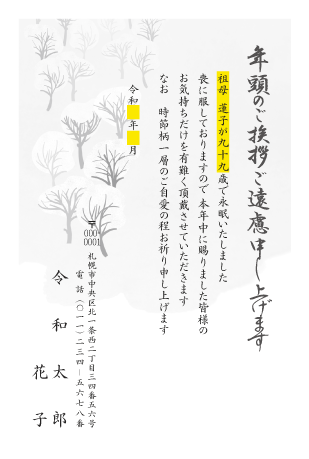 年頭のご挨拶ご遠慮申し上げます
祖母 蓮子が九十九歳で永眠いたしました
喪に服しておりますので本年中に賜りました皆様の
お気持ちだけを有難く頂戴させていただきます
なお 時節柄一層のご自愛の程お祈り申し上げます
令和 年 月
〒000-0001
札幌市中央区北一条西二丁目三四番五六号
電話(〇一一)二三四―五六七八番
令和 太郎
花子